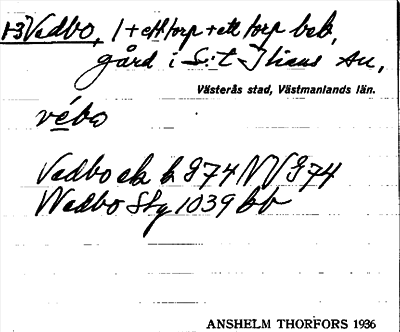 1-3 Vedbo, 1 + ett torp + ett torp beb,
gård i S:t Ilians sn,
Västerås stad, Västmanlands län.
vébo
Vedbo ek h 974 NV 974
Wedbo Sty 1039 bb
ANSHELM THORFORS 1936